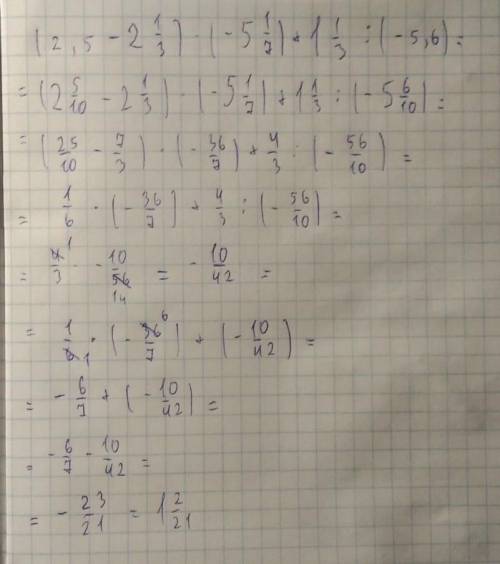 (2,5 - 2 1/3) · (-5 1/7) + 1 1/3 : (-5,6) =
= (2 5/10 - 2 1/3) · (-5 1/7) + 1 1/3 : (-5 6/10) =
= (25/10 - 7/3) · (-36/7) + 4/3 : (-56/10) =
= 1/6 · (-36/7) + 4/3 : (-56/10) =
= 4 1/3 · - 10/56 14 = - 10/42 =
= 1/6 1 · (- 36 6/7) + (- 10/42) =
= - 6/7 + (- 10/42) =
= - 6/7 - 10/42 =
= - 23/21 = 1 2/21